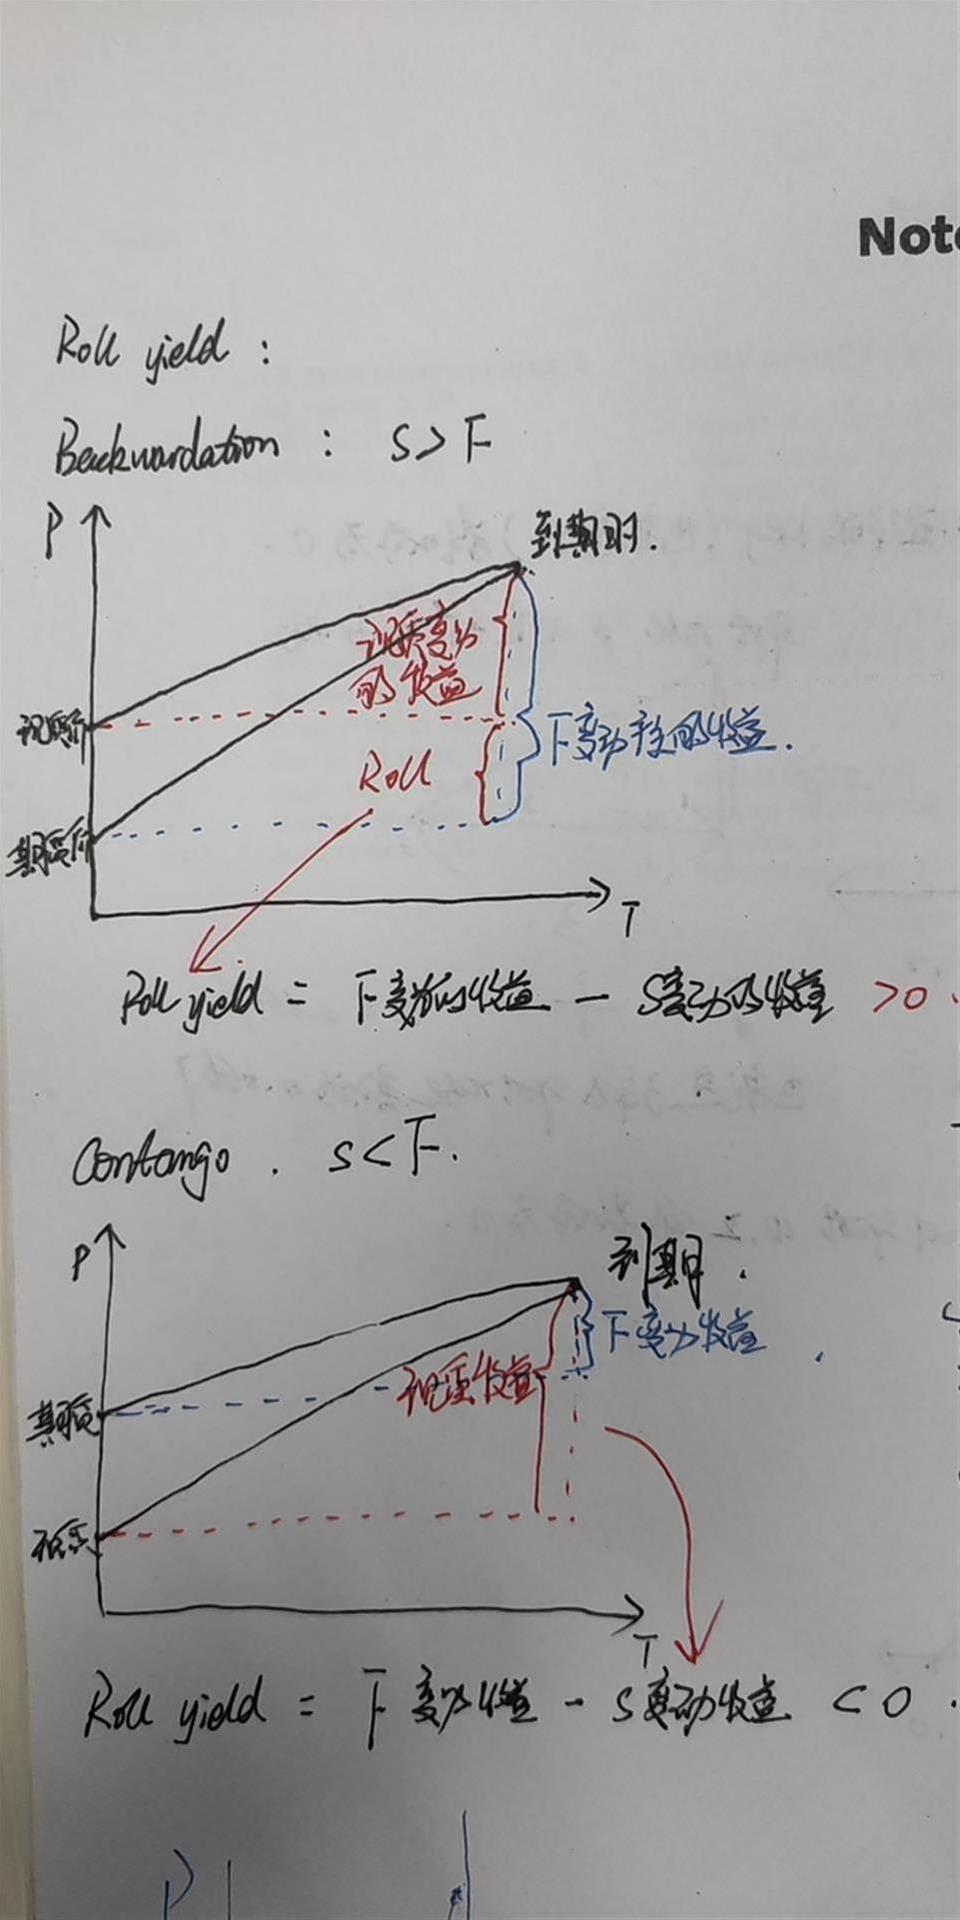 Note
Roll yield :
Backwardation : S>F
P
到期时.
现货变动
的收益
现货价
F变动产生的收益.
Roll
期货价
T
Roll yield = F变动的收益 - S变动的收益 >0.
Contango . S<F.
P
到期 .
F变动收益
现货收益
期货
现货
T
Roll yield = F变动收益 - S变动收益 <0.